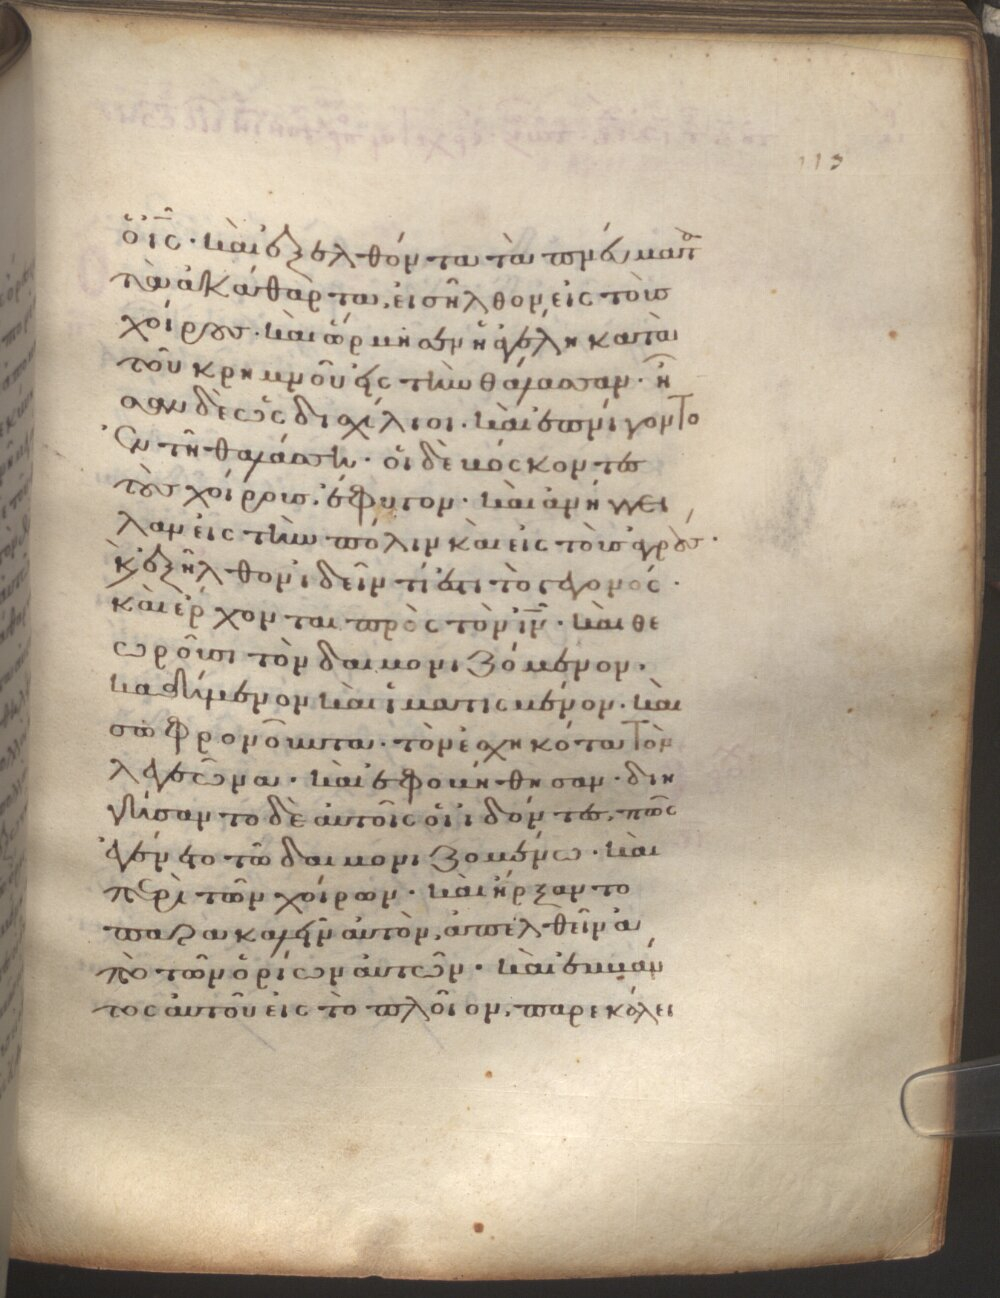 113
ὁ ἰ̅ς̅· καὶ ἐξελθόντα τὰ πνεύματα
τὰ ἀκάθαρτα, εἰσῆλθον εἰς τοὺς
χοίρους· καὶ ὥρμησεν ἡ ἀγέλη κατὰ
τοῦ κρημνοῦ εἰς τὴν θάλασσαν· ἦ
σαν δὲ ὡς δισχίλιοι· καὶ ἐπνίγοντο
ἐν τῇ θαλάσσῃ· οἱ δὲ βόσκοντες
τοὺς χοίρους, ἔφυγον· καὶ ἀνήγγει
λαν εἰς τὴν πόλιν καὶ εἰς τοὺς ἀγρούς·
καὶ ἐξῆλθον ἰδεῖν τί ἐστι τὸ γεγονός·
καὶ ἔρχονται πρὸς τὸν ἰ̅ν̅· καὶ θε
ωροῦσι τὸν δαιμονιζόμενον·
καθήμενον καὶ ἱματισμένον· καὶ
σωφρονοῦντα· τὸν ἐσχηκότα τὸν
λεγεῶνα· καὶ ἐφοβήθησαν· διη
γήσαντο δὲ αὐτοῖς οἱ ἰδόντες, πῶς
ἐγένετο τῷ δαιμονιζομένῳ· καὶ
περὶ τῶν χοίρων· καὶ ἤρξαντο
παρακαλεῖν αὐτὸν, ἀπελθεῖν ἀ
πὸ τῶν ὁρίων αὐτῶν· καὶ ἐμβάν
τος αὐτοῦ εἰς τὸ πλοῖον, παρεκάλει